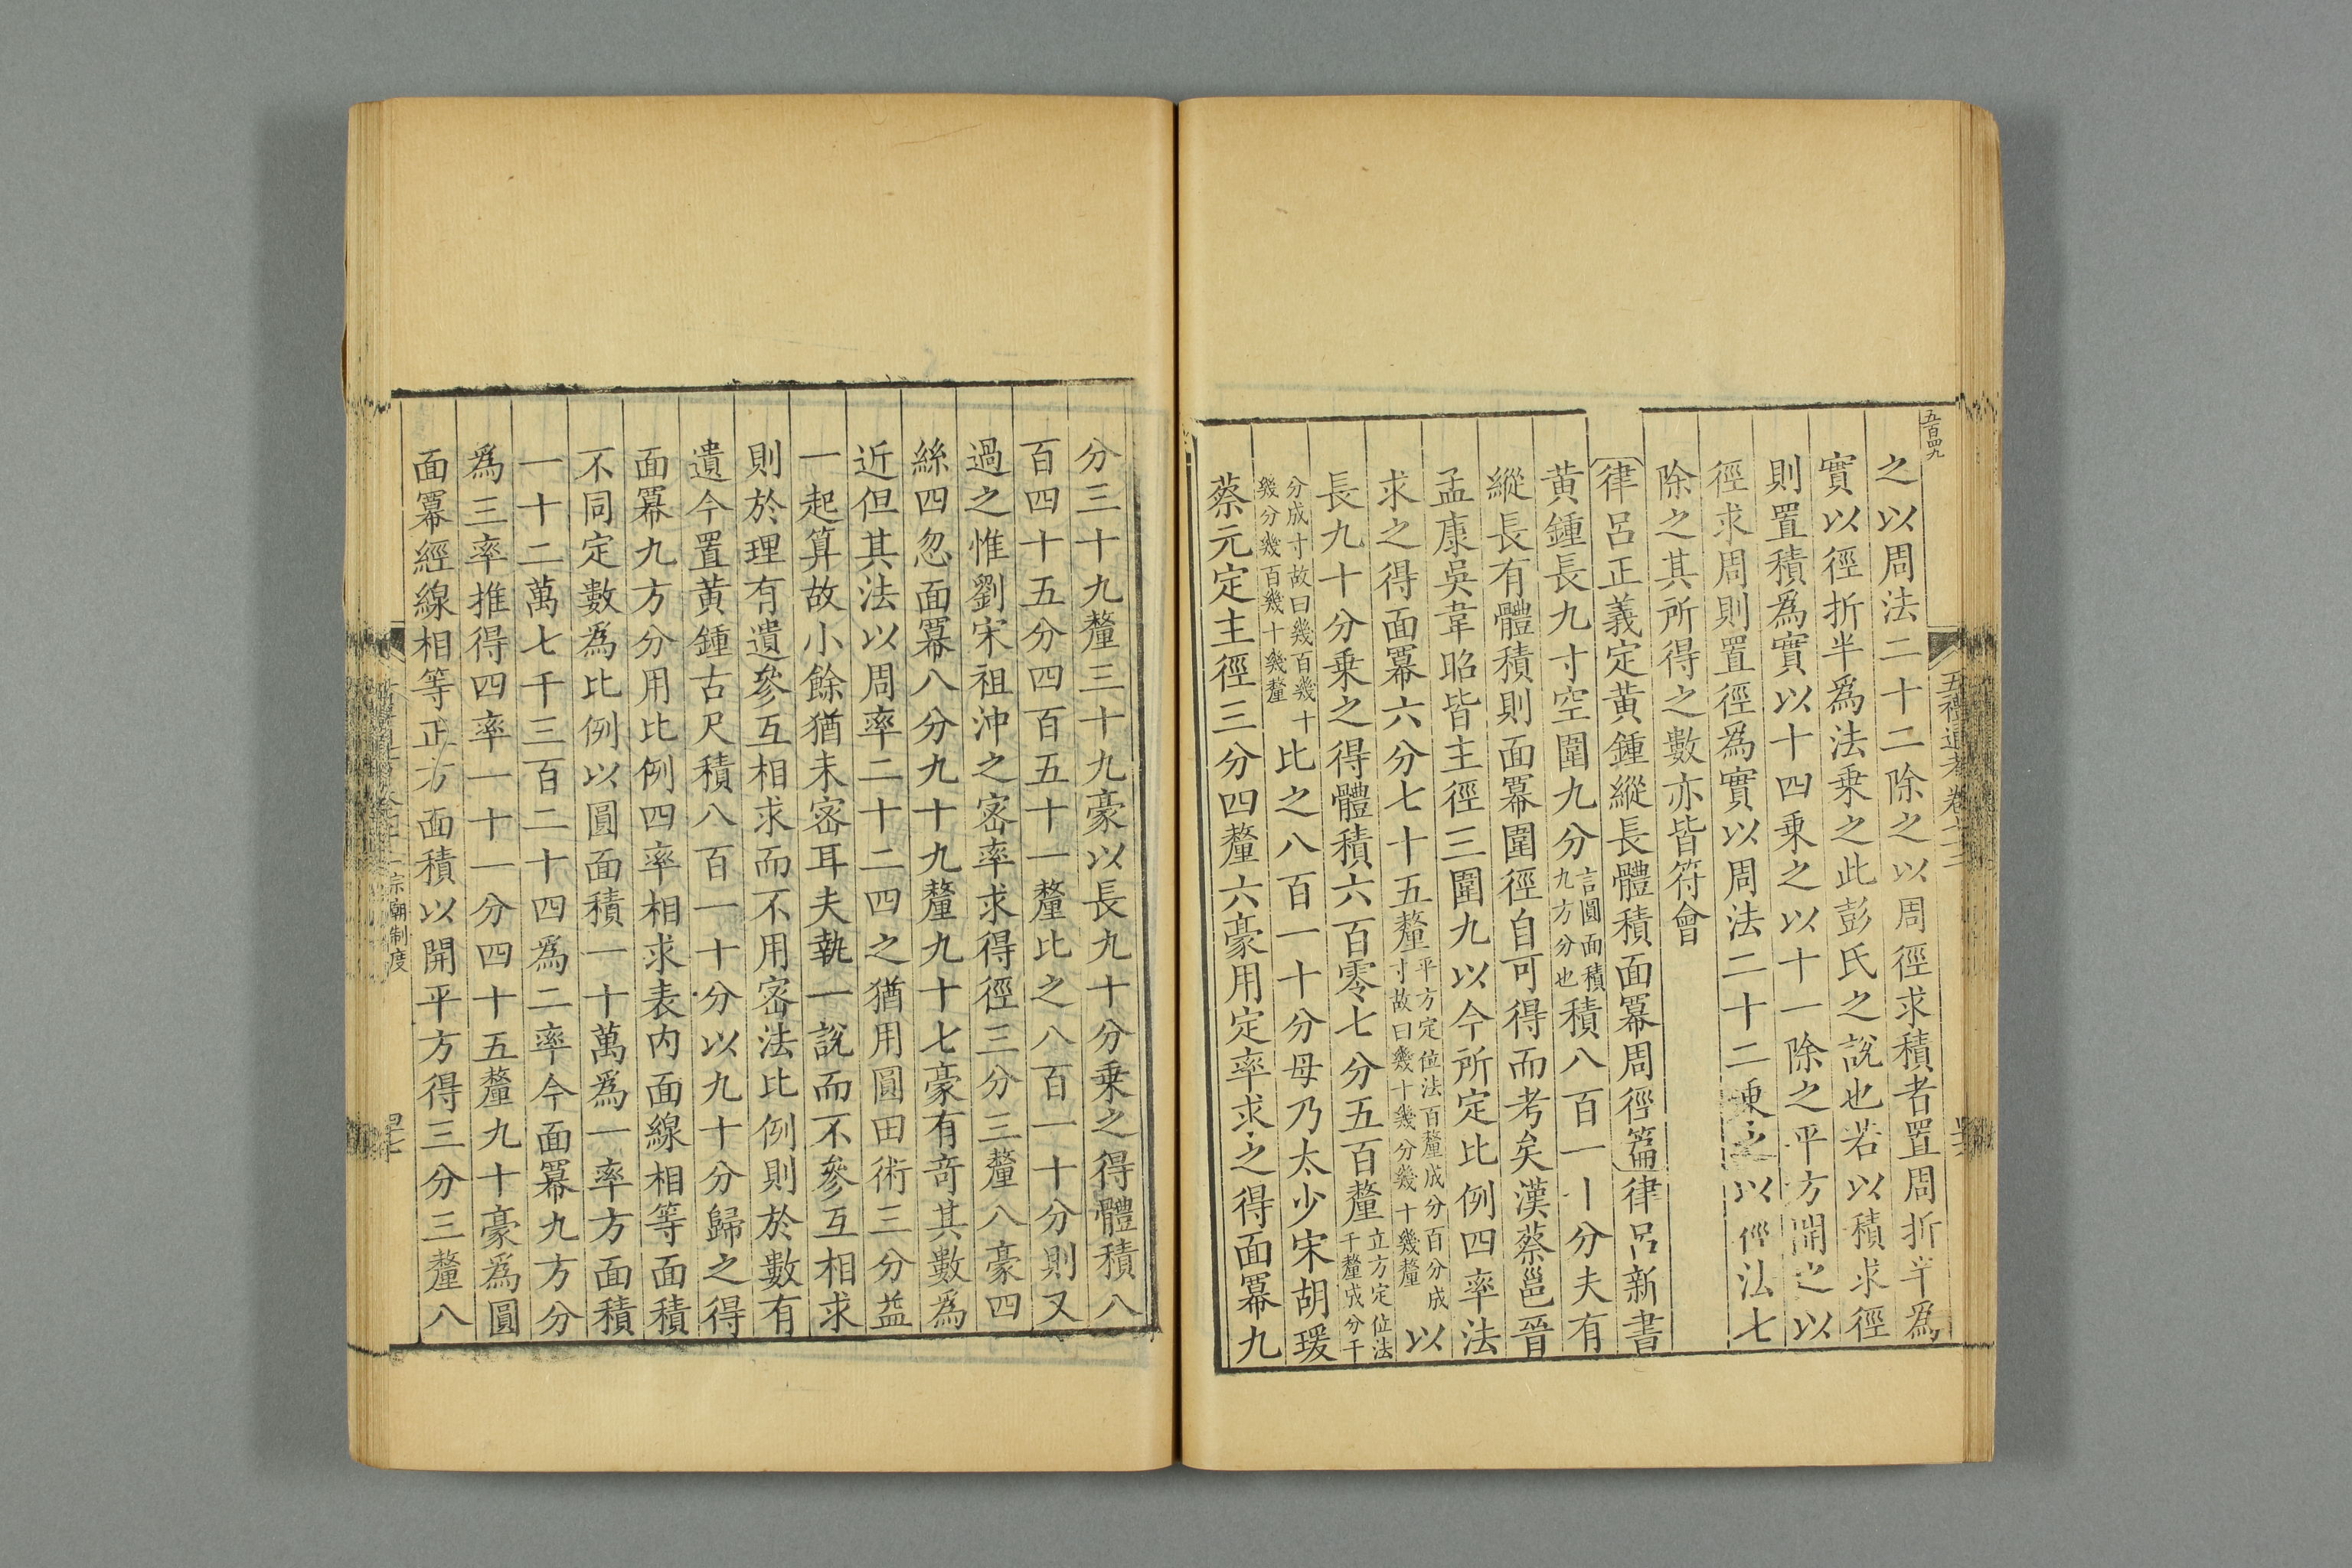 五百四九
五禮通考卷
之以周法二十二除之以周徑求積者置周折半爲
實以徑折半爲法乗之此彭氏之說也若以積求徑
則置積爲實以十四乗之以十一除之平方開之以
徑求周則置徑爲實以周法二十二乗之以徑法七
除之其所得之數亦皆符會
律呂正義定黃鍾縱長體積面冪周徑篇律呂新書
黃鍾長九寸空圍九分言圓面積九方分也積八百一十分夫有
縱長有體積則面冪圍徑自可得而考矣漢蔡邕晉
孟康吳韋昭皆主徑三圍九以今所定比例四率法
求之得面冪六分七十五釐平方定位法百釐成分百分成寸故曰幾十幾分幾十幾釐以
長九十分乗之得體積六百零七分五百釐立方定位法千釐成分千
分成寸故曰幾百幾十幾分幾百幾十幾釐比之八百一十分母乃太少宋胡瑗
蔡元定主徑三分四釐六豪用定率求之得面冪九
分三十九釐三十九豪以長九十分乗之得體積八
百四十五分四百五十一釐比之八百一十分則又
過之惟劉宋祖沖之密率求得徑三分三釐八豪四
絲四忽面冪八分九十九釐九十七豪有奇其數爲
近但其法以周率二十二四之猶用圓田術三分益
一起算故小餘猶未密耳夫執一說而不參互相求
則於理有遺參互相求而不用密法比例則於數有
遺今置黃鍾古尺積八百一十分以九十分歸之得
面冪九方分用比例四率相求表内面線相等面積
不同定數爲比例以圓面積一十萬爲一率方面積
一十二萬七千三百二十四爲二率今面冪九方分
爲三率推得四率一十一分四十五釐九十豪爲圓
面冪經線相等正方面積以開平方得三分三釐八
宗廟制度